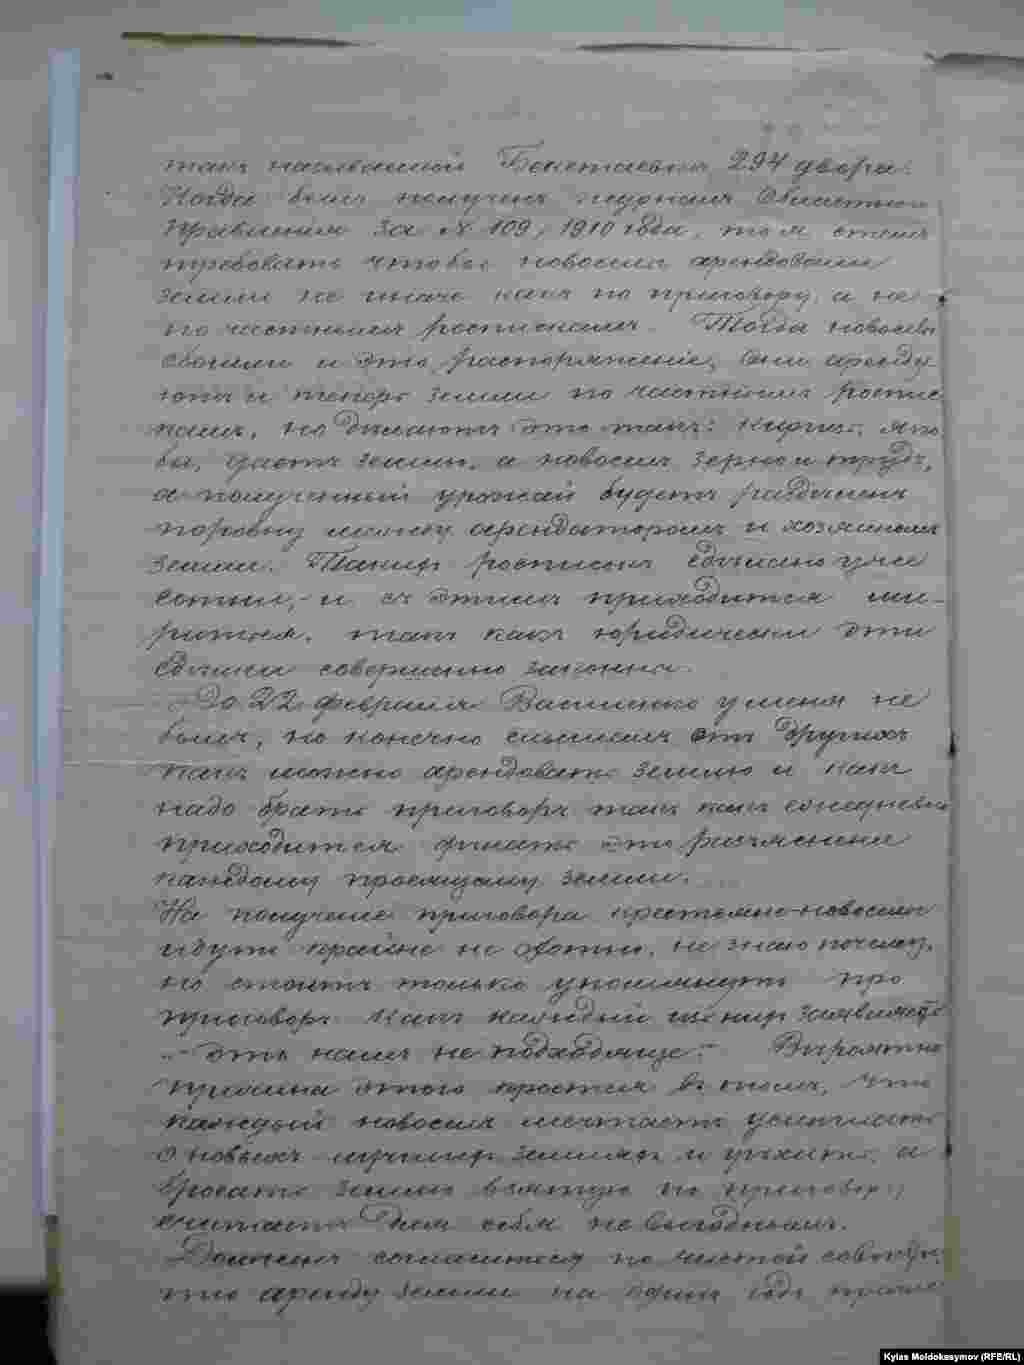 такъ называемой Бекетаевка 294 двора.
Когда былъ полученъ журналъ Областного
Правленія за № 109, 1910 года, то я сталъ
требовать чтобы новоселы арендовали
земли не иначе какъ по приговору, а не
по частнымъ роспискамъ. Тогда новоселы
обошли и это распоряженіе, они аренду-
ютъ и теперь земли по частнымъ роспис-
камъ, но дѣлаютъ это такъ: киргизъ, яко-
бы, даетъ землю, а новоселъ зерно и трудъ,
а полученный урожай будетъ раздѣленъ
поровну между арендаторомъ и хозяиномъ
земли. Такихъ росписокъ сдѣлано уже
сотни, и съ этимъ приходится ми-
риться, такъ какъ юридически эти
сдѣлки совершенно законны.
До 22 февраля Василенко у меня не
былъ, но конечно слышалъ отъ другихъ
какъ можно арендовать землю и какъ
надо брать приговоръ такъ какъ ежедневно
приходится дѣлать это разъясненіе
каждому просящему земли.
На полученіе приговора крестьяне-новоселы
идутъ крайне не охотно, не знаю почему,
но стоитъ только упомянуть про
приговоръ какъ каждый изъ нихъ заявляетъ
"этъ намъ не подходяще". Вѣроятно
причина этого кроется въ томъ, что
каждый новоселъ мечтаетъ услышать
о новыхъ лучшихъ земляхъ и уѣхать, а
бросать землю взятую по приговору,
считаетъ для себя не выгоднымъ.
Долженъ согласиться по чистой совѣсти,
что аренду земли на одинъ годъ